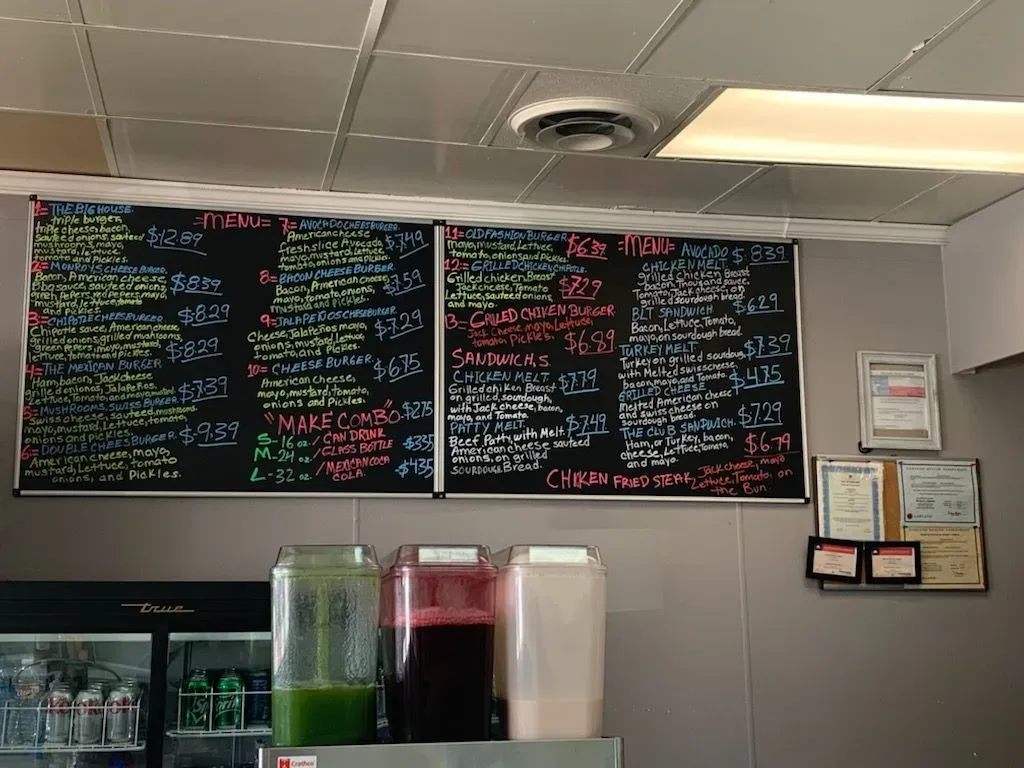 1= THE BIG HOUSE.
triple burger,
triple cheese, bacon,
sauteed onions, sauteed
mushrooms, mayo,
mustard, lettuce,
tomato and pickles.
$12.89
2= MONROY'S CHEESE BURGER.
Bacon, American cheese,
Bbq sauce, sauteed onions,
green Pepers, red Pepers, mayo,
and pickles.
$8.39
3= CHIPOTLE CHEESEBURGER.
Chipotle sauce, American cheese,
grilled onions, grilled mushrooms,
green peppers, mayo, mustard,
lettuce, tomato and pickles.
$8.29
$8.29
4= THE MEXICAN BURGER.
Ham, bacon, Jack cheese
grilled onions, Jalapeños,
and pickles.
$7.39
5= MUSHROOMS, SWISS BURGER.
Swiss, sauteed, mushrooms,
mayo, mustard, Lettuce, tomato
onions and pickles.
$9.39
6= DOUBLE CHEESBURGER.
American cheese, mayo,
mustard, Lettuce, tomato
onions, and Pickles.
=MENU=
7= AVOCADO CHEESBURGER.
American Cheese,
Fresh slice Avocado,
tomato, onions and pickles.
$7.49
8= BACON CHEESE BURGER.
Bacon, American cheese,
mayo, tomato, onions,
mustard and Pickles.
$7.59
9= JALAPEÑOS CHEESBURGER.
Cheese, Jalapeños, mayo,
onions, mustard, Lettuce
tomato, and Pickles.
$7.29
10= CHEESE BURGER.
American cheese,
mayo, mustard, Tomato
onions and Pickles.
$6.75
"MAKE COMBO"
$2.75
S-16 oz. / CAN DRINK
M-24 oz. / GLASS BOTTLE
$3.35
L-32 oz. / MEXICAN COCA COLA.
$4.35
11= OLD FASHION BURGER
mayo, mustard, Lettuce,
tomato, onions and pickles.
$6.39
12= GRILLED CHICKEN CHIPOTLE.
Grilled chicken, Breast
Jack cheese, Tomato
Lettuce, sauteed onions,
and mayo.
$7.29
13= GRILLED CHIKEN BURGER.
Jack Cheese, mayo, Lettuce,
tomato, Pickles.
$6.89
SANDWICH,S
CHICKEN MELT.
Grilled chicken Breast
on grilled, sourdough,
with Jack cheese, bacon,
mayo, and Tomato.
$7.79
PATTY MELT.
Beef Patty, with Melt.
American cheese sauteed
onions, on grilled
SOURDOUGH Bread.
$7.49
=MENU=
AVOCADO
CHICKEN MELT.
$8.39
grilled Chicken Breast
bacon, Thousand sauce,
Tomato, Jack cheese, on
grilled sourdough bread.
BLT SANDWICH
$6.29
Bacon, Lettuce, Tomato,
mayo, on sourdough bread.
TURKEY MELT.
$7.39
Turkey on grilled sourdough
with Melted swiss cheese,
bacon, mayo, and Tomato.
GRILLED CHEESE
$4.75
Melted American cheese
and swiss cheese on
sourdough bread.
THE CLUB SANDWICH.
$7.29
Ham, or Turkey, bacon,
cheese, Lettuce, Tomato,
and mayo.
CHIKEN FRIED STEAK
$6.79
Jack cheese, mayo
Lettuce, Tomato, on
the Bun.
true
Sprite
Crathco